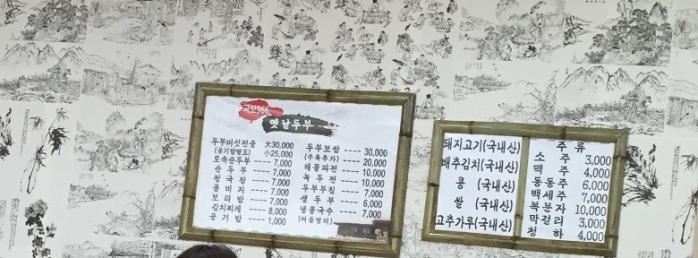 국보966
옛날두부
두부버섯전골 大30,000
(공기밥별도) 小25,000
토속순두부 ---- 7,000
순두부 ---- 7,000
청국장 ---- 7,000
콩비지 ---- 7,000
보리밥 ---- 7,000
김치찌개 ---- 8,000
공기밥 ---- 1,000
두부보쌈 ---- 30,000
(수육추가) 20,000
해물파전 ---- 10,000
녹두전 ---- 10,000
두부부침 ---- 7,000
생두부 ---- 6,000
냉콩국수 ---- 7,000
(여름별미)
돼지고기(국내산)
배추김치(국내산)
콩 (국내산)
쌀 (국내산)
고추가루(국내산)
주류
소주 3,000
맥주 4,000
동동주 6,000
백세주 7,000
복분자 10,000
막걸리 3,000
청하 4,000